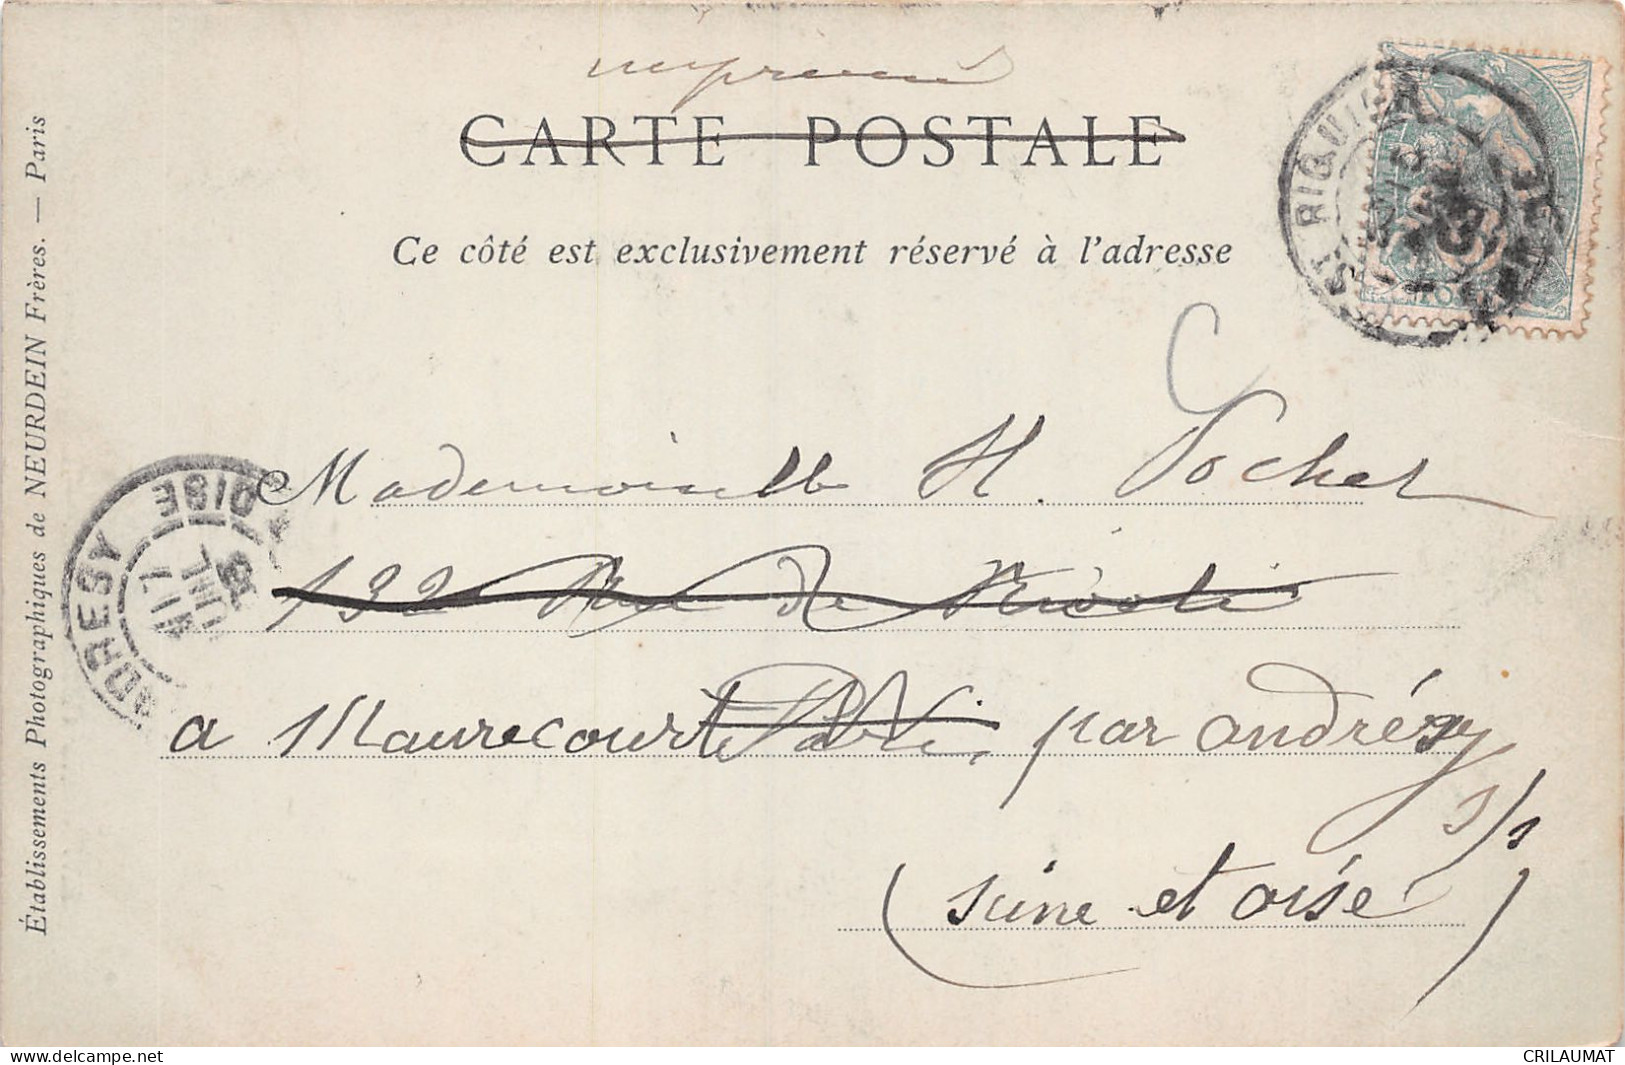 CARTE POSTALE
Ce côté est exclusivement réservé à l'adresse
Établissements Photographiques de NEURDEIN Frères. — Paris
ST RIQUIER
Mademoiselle H. Pochet
132 Rue de Rivoli
Paris
a Maurecourt par andrésy
s/s
(seine et oise)
ANDRESY
OISE
17
JUIL
03
CRILAUMAT